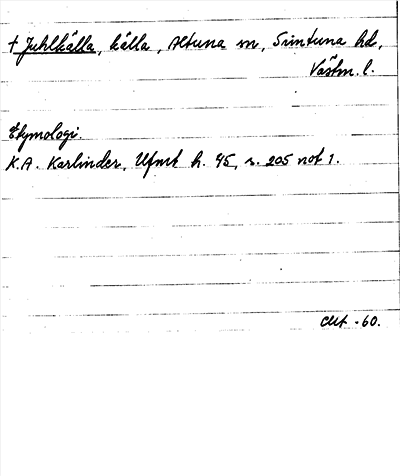 † Juhlkälla, källa, Altuna sn, Simtuna hd,
Västm. l.
Etymologi.
K.A. Karlinder, Ufmt h. 45, s. 205 not 1.
-60.